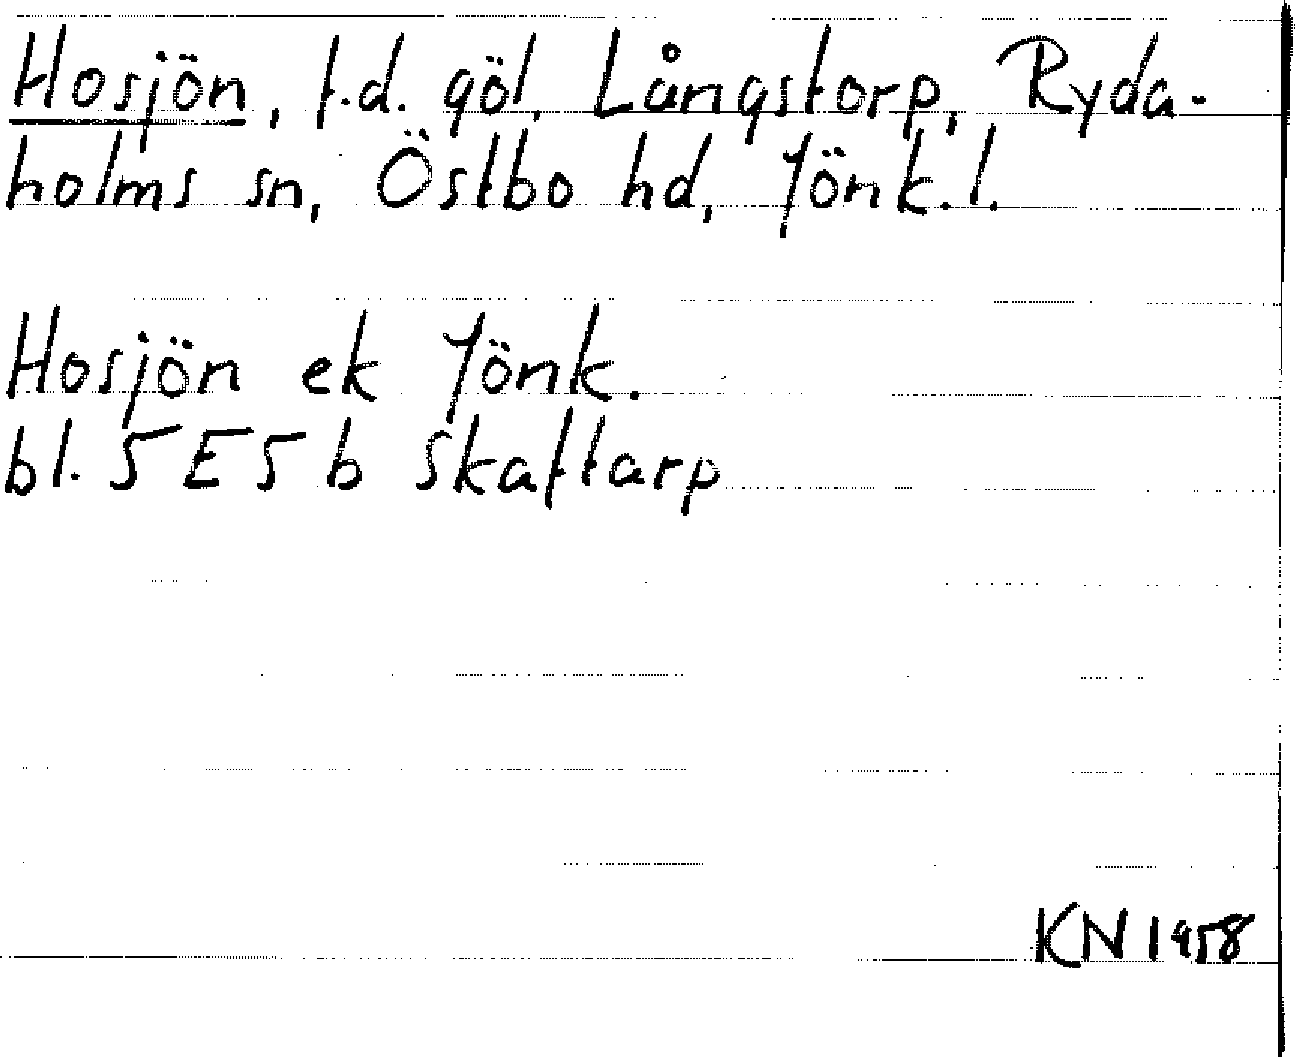 Hosjön, f.d. göl, Långstorp, Ryda-
holms sn, Östbo hd, Jönk.l.
Hosjön ek Jönk.
bl. 5E5b Skaftarp
KN 1958